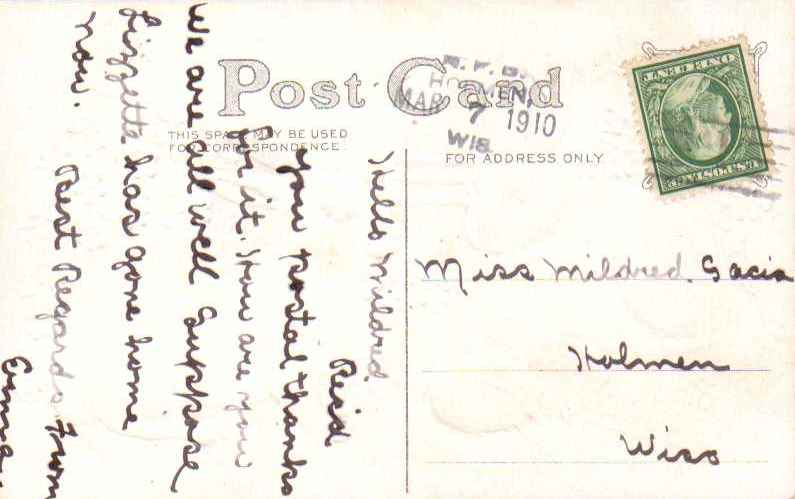 Post Card
THIS SPACE MAY BE USED
FOR CORRESPONDENCE
FOR ADDRESS ONLY
R. F. D.
HOLMEN,
MAR 7 1910
WIS
U.S. POSTAGE
ONE CENT
Miss Mildred Gacia
Holmen
Wisc
Hello Mildred
Rec'd
you postal thanks
for it. How are you
we are all well Suppose
Lizzette has gone home
now.
Best Regards From
Emma.